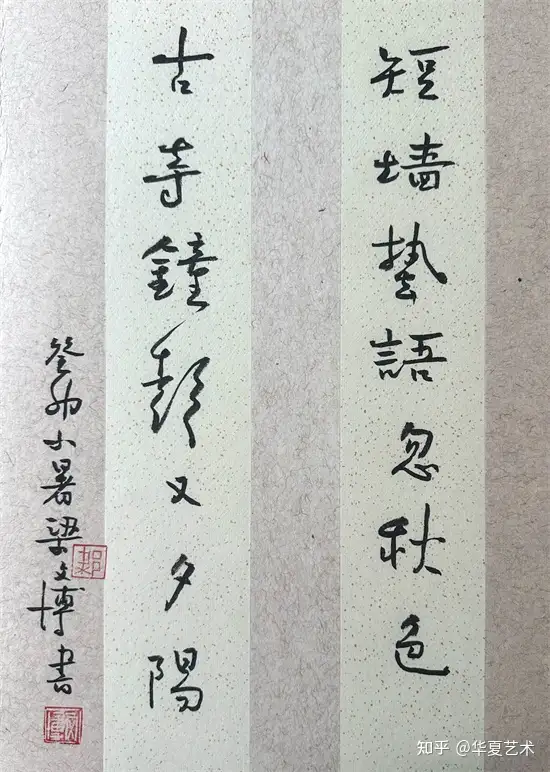 短墙語忽秋色
古寺鐘又夕陽
癸卯小暑梁文博書
知乎 @华夏艺术